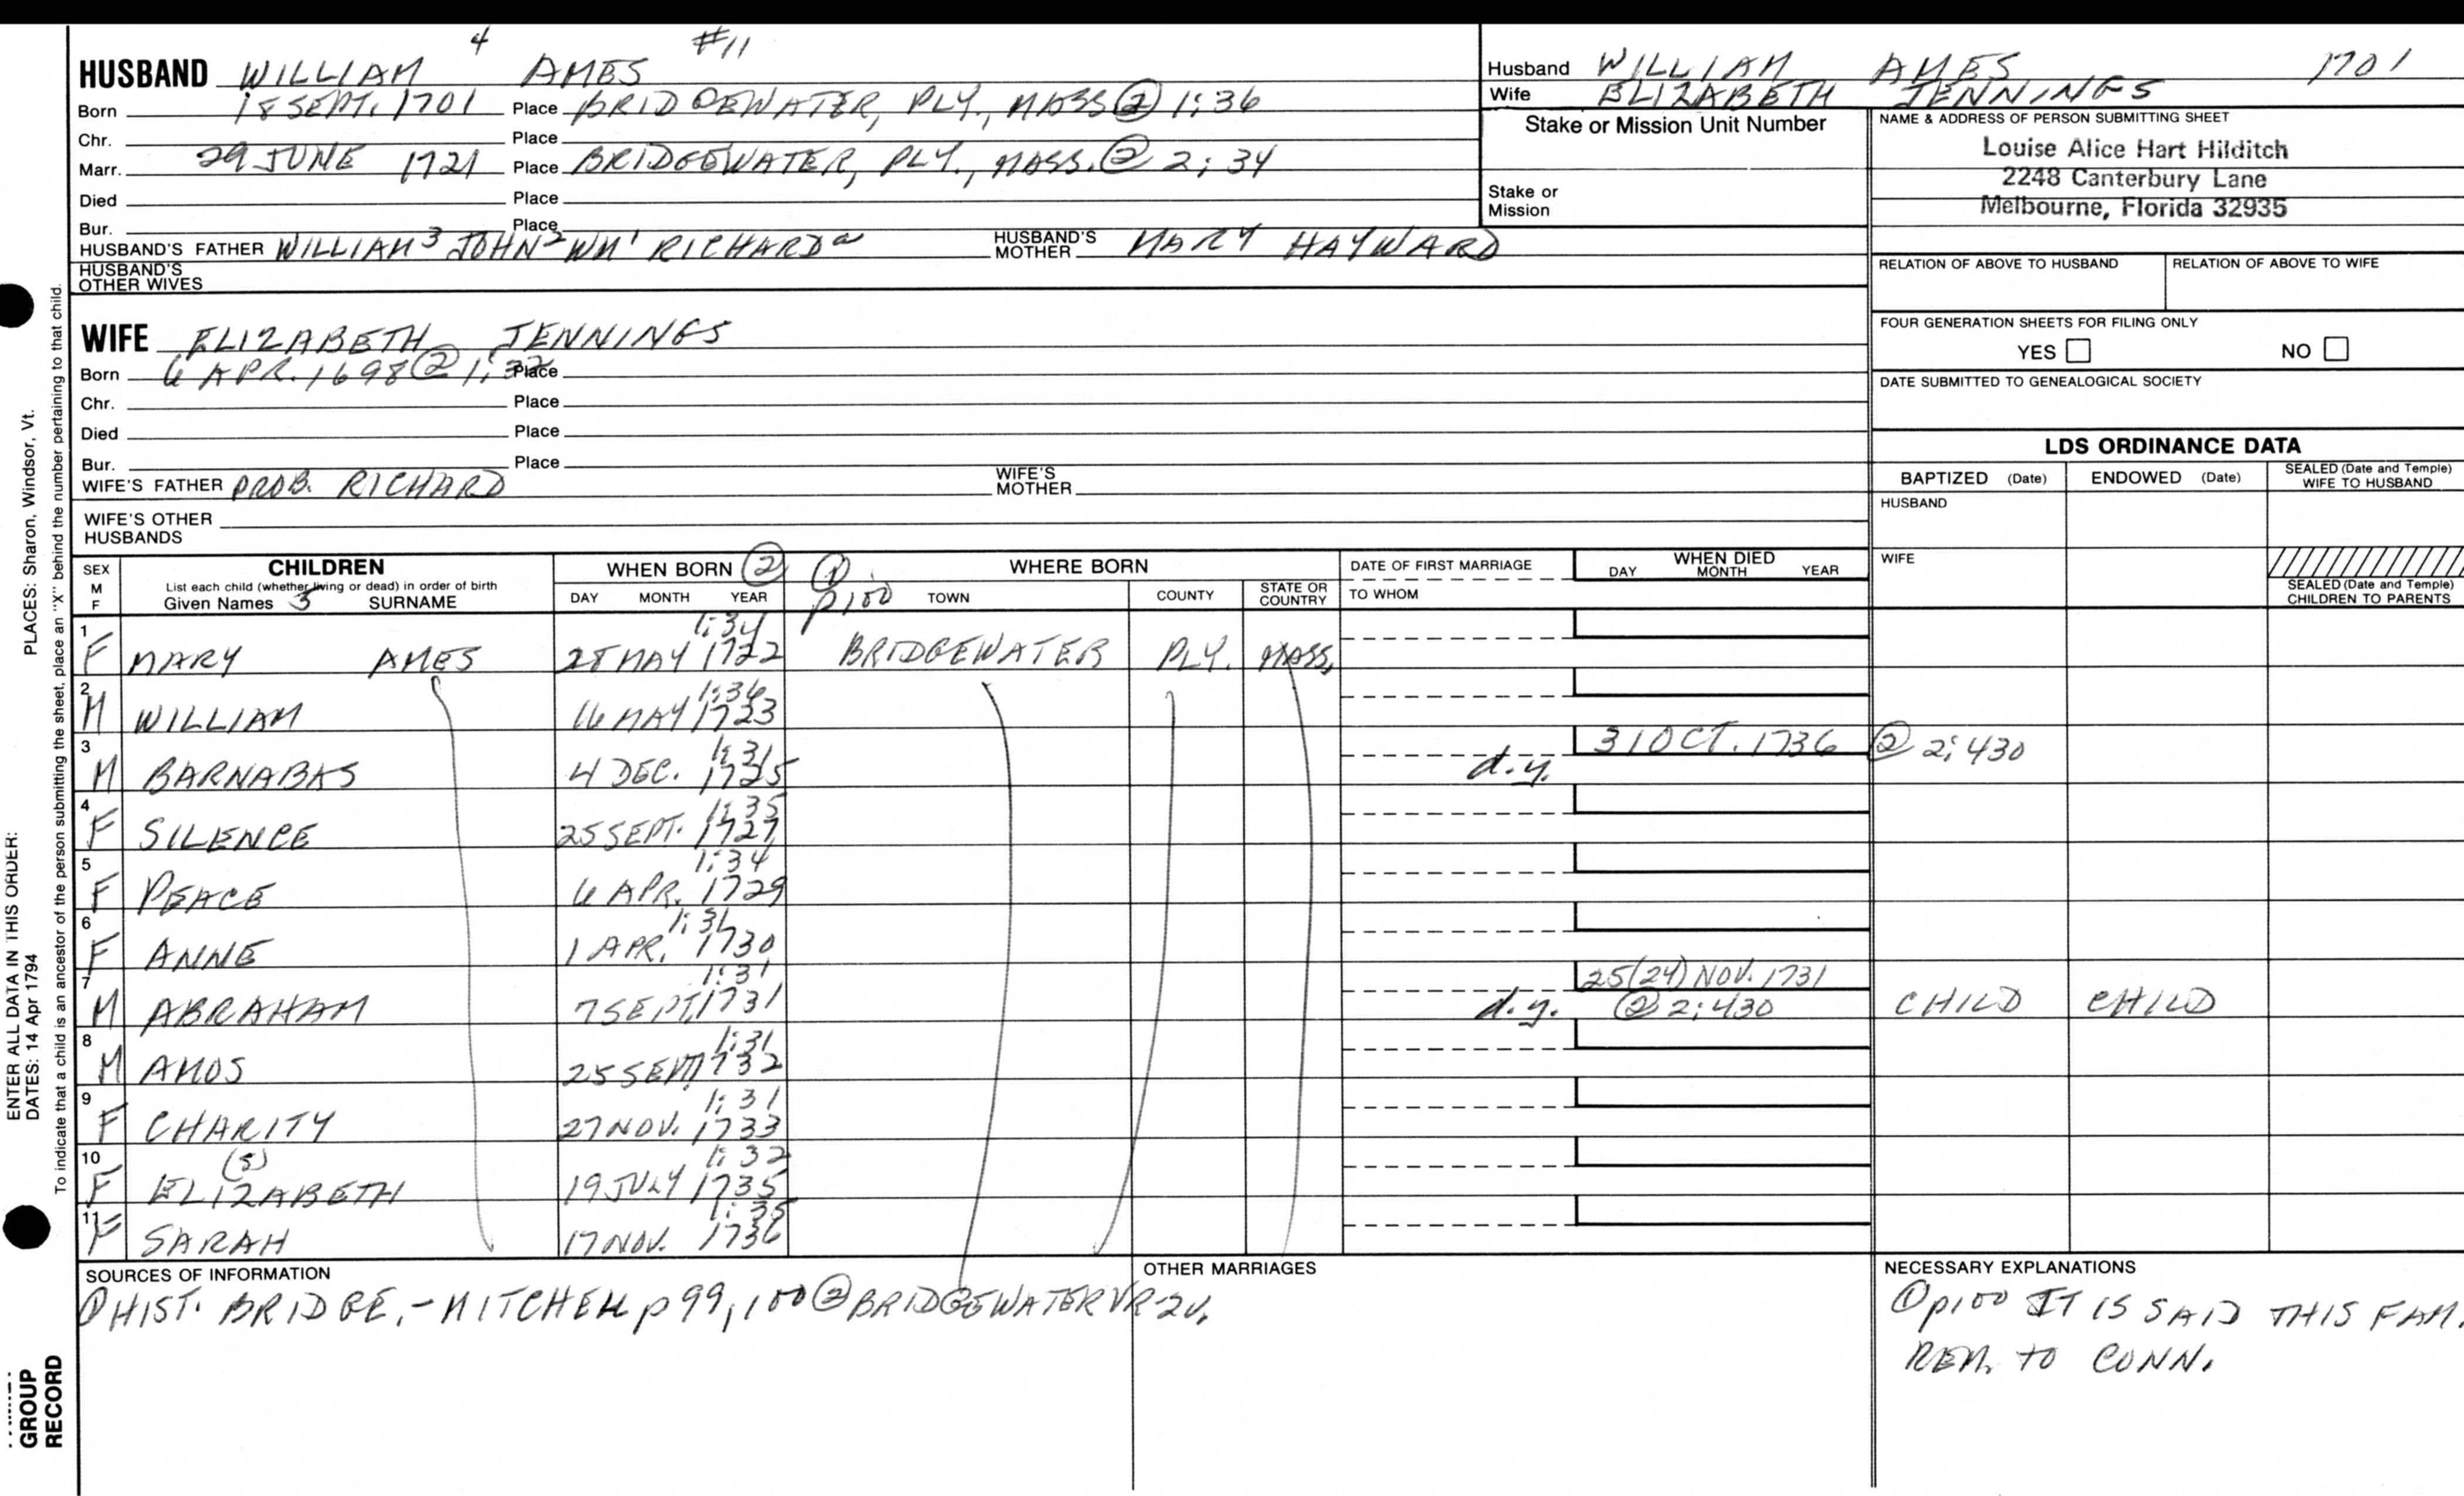 4 #11
HUSBAND WILLIAM AMES
Born 18 SEPT. 1701 Place BRIDGEWATER, PLY., MASS ② 1:36
Chr. Place
Marr. 29 JUNE 1721 Place BRIDGEWATER, PLY., MASS. ② 2:34
Died Place
Bur. Place
HUSBAND'S FATHER WILLIAM³ JOHN² WM¹ RICHARDᵃ HUSBAND'S MOTHER MARY HAYWARD
HUSBAND'S OTHER WIVES
Husband WILLIAM AMES 1701
Wife ELIZABETH JENNINGS
Stake or Mission Unit Number
Stake or Mission
NAME & ADDRESS OF PERSON SUBMITTING SHEET
Louise Alice Hart Hilditch
2248 Canterbury Lane
Melbourne, Florida 32935
RELATION OF ABOVE TO HUSBAND RELATION OF ABOVE TO WIFE
FOUR GENERATION SHEETS FOR FILING ONLY
YES NO
DATE SUBMITTED TO GENEALOGICAL SOCIETY
WIFE ELIZABETH JENNINGS
Born 6 APR. 1698 ② 1:32 Place
Chr. Place
Died Place
Bur. Place
WIFE'S FATHER PROB. RICHARD WIFE'S MOTHER
WIFE'S OTHER HUSBANDS
LDS ORDINANCE DATA
BAPTIZED (Date) ENDOWED (Date) SEALED (Date and Temple) WIFE TO HUSBAND
HUSBAND
WIFE
SEALED (Date and Temple) CHILDREN TO PARENTS
SEX M F
CHILDREN
List each child (whether living or dead) in order of birth
Given Names 5 SURNAME
WHEN BORN ②
DAY MONTH YEAR
① p100 WHERE BORN
TOWN COUNTY STATE OR COUNTRY
DATE OF FIRST MARRIAGE
TO WHOM
WHEN DIED
DAY MONTH YEAR
1 F MARY AMES 28 MAY 1722 1:34 BRIDGEWATER PLY. MASS.
2 M WILLIAM 16 MAY 1723 1:36
3 M BARNABAS 4 DEC. 1725 1:31 d.y. 31 OCT. 1736 ② 2:430
4 F SILENCE 25 SEPT. 1727 1:35
5 F PEACE 6 APR. 1729 1:34
6 F ANNE 1 APR. 1730 1:31
7 M ABRAHAM 7 SEPT. 1731 1:31 d.y. 25(24) NOV. 1731 ② 2:430 CHILD CHILD
8 M AMOS 25 SEPT. 1732 1:31
9 F CHARITY 27 NOV. 1733 1:31
10 F ELIZABETH (S) 19 JULY 1735 1:32
11 F SARAH 17 NOV. 1736 1:35
SOURCES OF INFORMATION
① HIST. BRIDGE. - MITCHELL p 99, 100 ② BRIDGEWATER VR 2V.
OTHER MARRIAGES
NECESSARY EXPLANATIONS
① p100 IT IS SAID THIS FAM.
REM. TO CONN.
PLACES: Sharon, Windsor, Vt.
To indicate that a child is an ancestor of the person submitting the sheet, place an "X" behind the number pertaining to that child.
ENTER ALL DATA IN THIS ORDER:
DATES: 14 Apr 1794
GROUP
RECORD